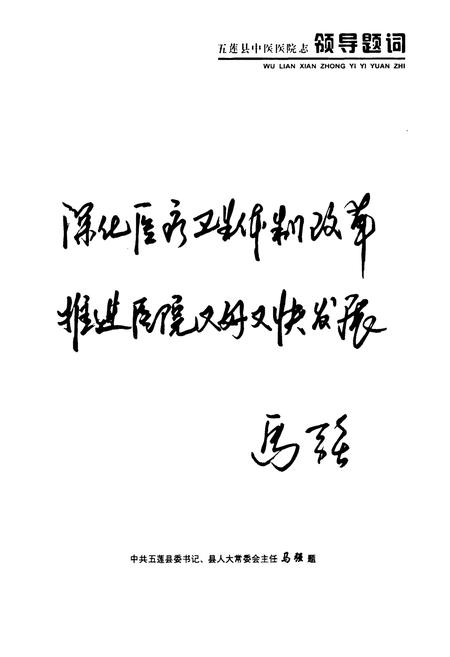 五莲县中医医院志 领导题词
WU LIAN XIAN ZHONG YI YI YUAN ZHI
深化医疗卫生体制改革
推进医院又好又快发展
马强
中共五莲县委书记、县人大常委会主任 马强 题